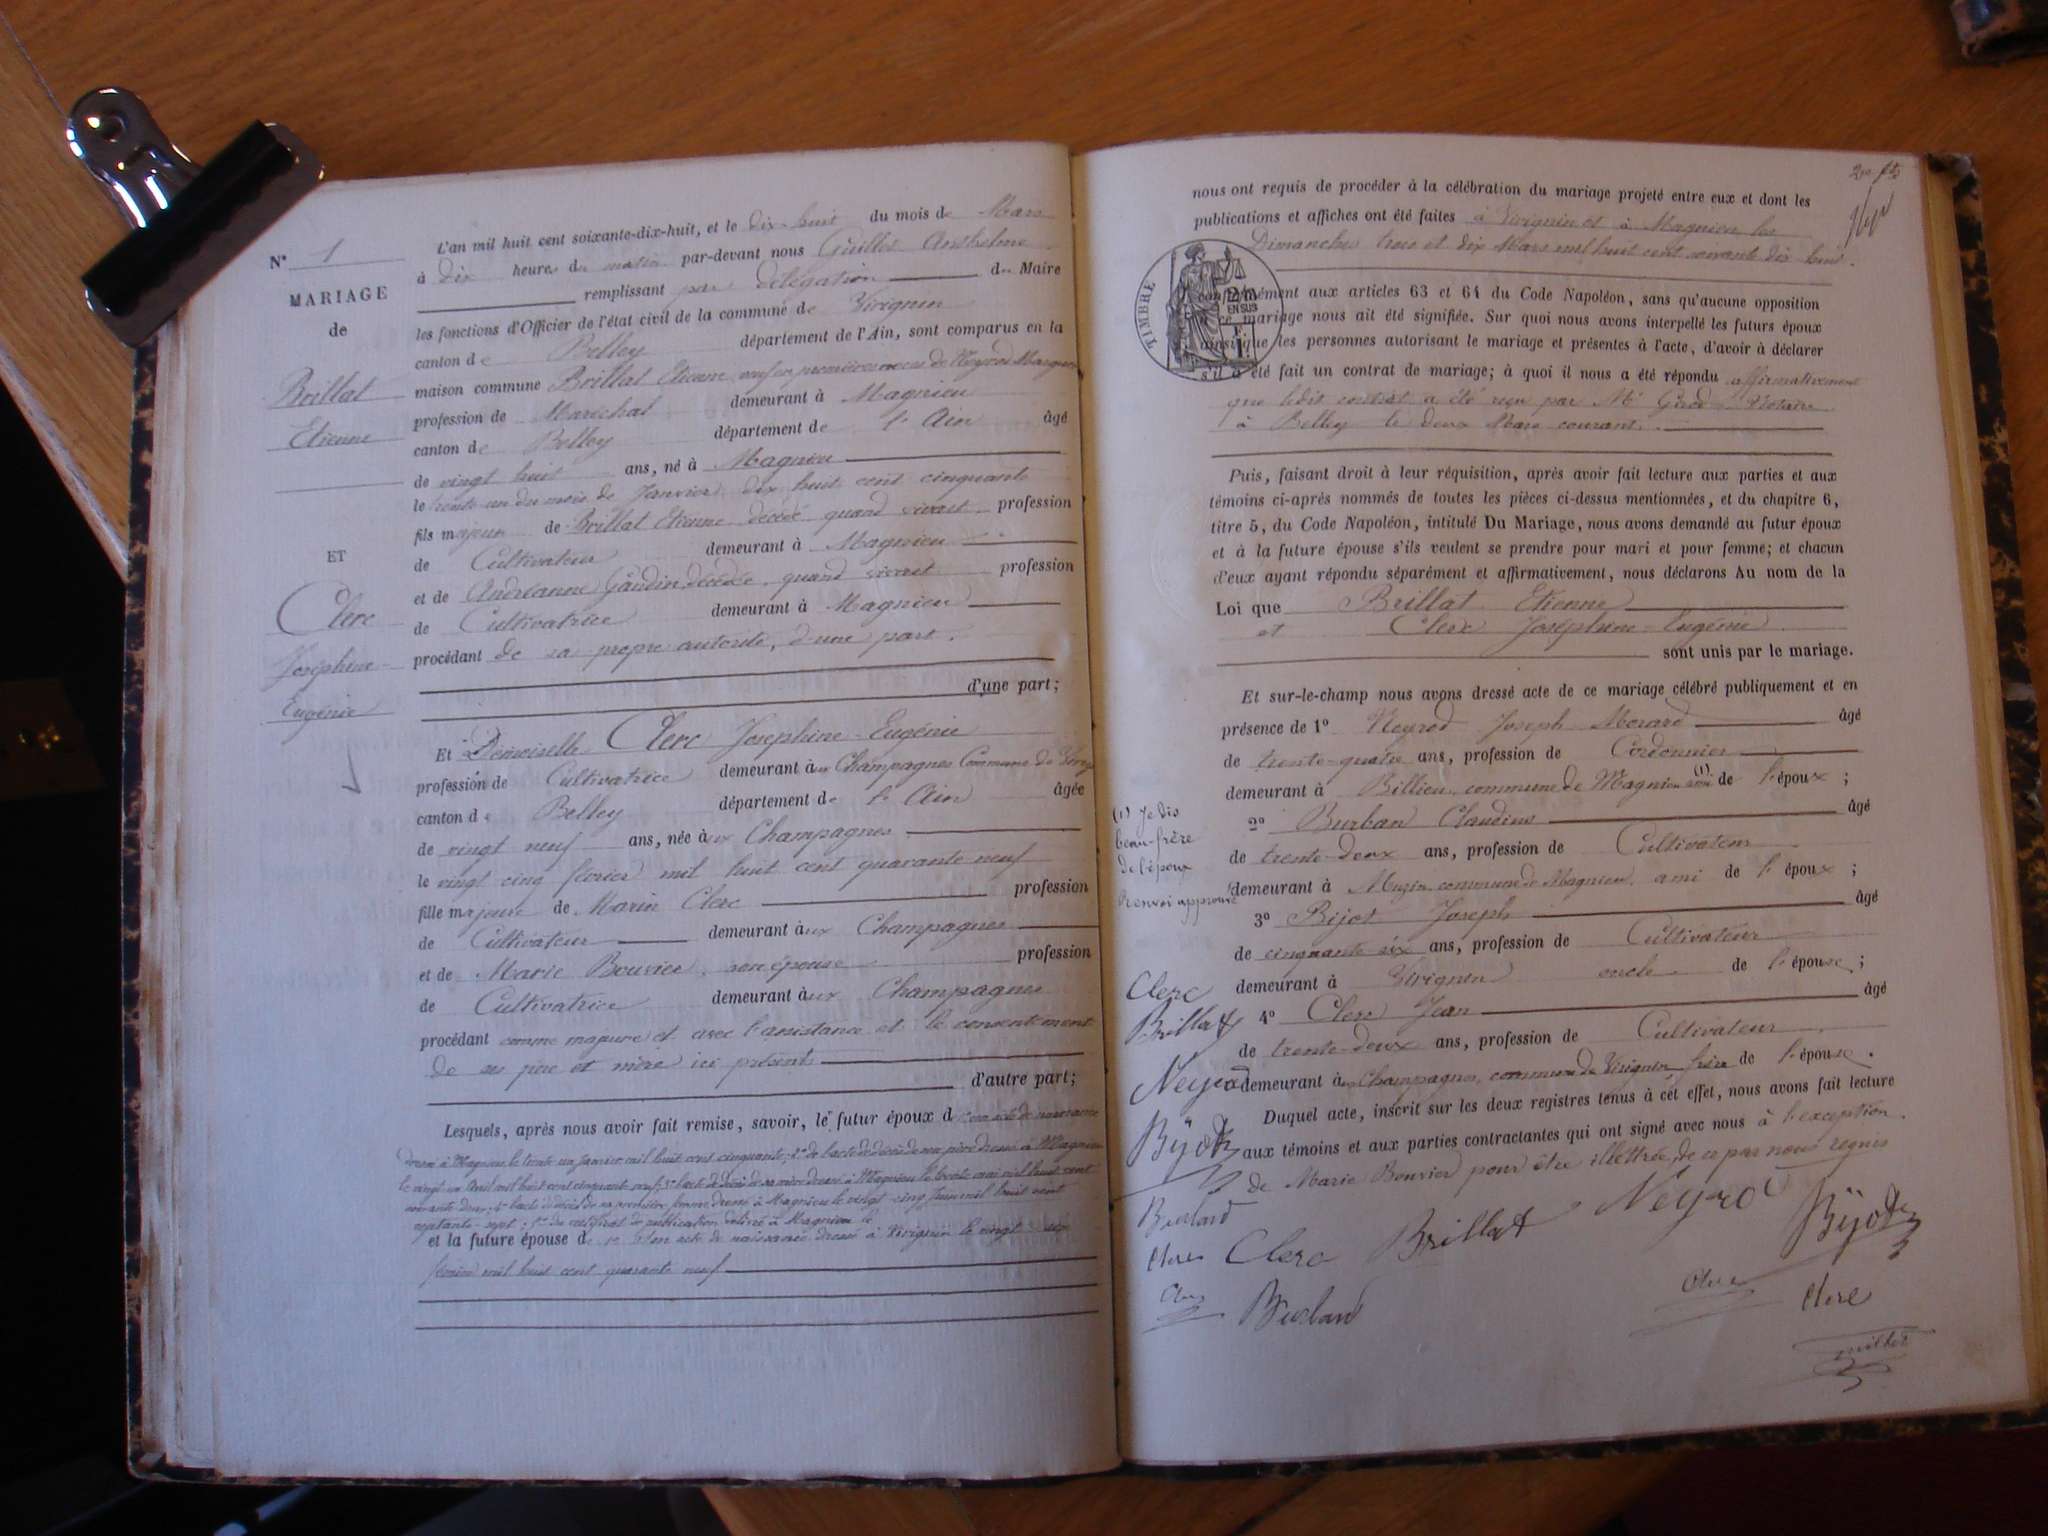 N° 1
MARIAGE
de
Brillat
Etienne
ET
Clerc
Joséphine
Eugénie
L'an mil huit cent soixante-dix-huit, et le dix huit du mois de Mars
à dix heures du matin par-devant nous Guillot Anthelme
remplissant par délégation du Maire
les fonctions d'Officier de l'état civil de la commune de Virignin
canton de Belley département de l'Ain, sont comparus en la
maison commune Brillat Etienne veuf en premières noces de Neyrod
profession de Maréchal demeurant à Magnieu
canton de Belley département de l'Ain âgé
de vingt huit ans, né à Magnieu
le trente un du mois de Janvier dix huit cent cinquante
fils majeur de Brillat Etienne décédé quand vivait profession
de Cultivateur demeurant à Magnieu
et de Andréanne Gaudin décédée, quand vivait profession
de Cultivatrice demeurant à Magnieu
procédant de sa propre autorité, d'une part.
d'une part;
Et Demoiselle Clerc Joséphine Eugénie
profession de Cultivatrice demeurant aux Champagnes Commune de
canton de Belley département de l'Ain âgée
de vingt neuf ans, née aux Champagnes
le vingt cinq février mil huit cent quarante neuf
fille majeure de Marin Clerc profession
de Cultivateur demeurant aux Champagnes
et de Marie Bouvier son épouse profession
de Cultivatrice demeurant aux Champagnes
procédant comme majeure et avec l'assistance et le consentement
de ses père et mère ici présents
d'autre part;
Lesquels, après nous avoir fait remise, savoir, le futur époux de 1° son acte de naissance
dressé à Magnieu le trente un Janvier mil huit cent cinquante; 2° de l'acte de décès de son père dressé à Magnieu
le vingt un Avril mil huit cent cinquante neuf; 3° l'acte de décès de sa mère dressé à Magnieu le trente mai mil huit cent
soixante deux; 4° l'acte de décès de sa première femme dressé à Magnieu le vingt cinq Juin mil huit cent
septante sept; 5° du certificat de publication délivré à Magnieu le
et la future épouse de son acte de naissance dressé à Virignin le vingt six
février mil huit cent quarante neuf
nous ont requis de procéder à la célébration du mariage projeté entre eux et dont les
publications et affiches ont été faites à Virignin et à Magnieu les
Dimanches trois et dix Mars mil huit cent soixante dix huit.
TIMBRE
conformément aux articles 63 et 64 du Code Napoléon, sans qu'aucune opposition
à ce mariage nous ait été signifiée. Sur quoi nous avons interpellé les futurs époux
ainsi que les personnes autorisant le mariage et présentes à l'acte, d'avoir à déclarer
s'il a été fait un contrat de mariage; à quoi il nous a été répondu affirmativement
que ledit contrat a été reçu par Me Girod Notaire
à Belley le deux Mars courant.
Puis, faisant droit à leur réquisition, après avoir fait lecture aux parties et aux
témoins ci-après nommés de toutes les pièces ci-dessus mentionnées, et du chapitre 6,
titre 5, du Code Napoléon, intitulé Du Mariage, nous avons demandé au futur époux
et à la future épouse s'ils veulent se prendre pour mari et pour femme; et chacun
d'eux ayant répondu séparément et affirmativement, nous déclarons Au nom de la
Loi que Brillat Etienne
et Clerc Joséphine Eugénie
sont unis par le mariage.
Et sur-le-champ nous avons dressé acte de ce mariage célébré publiquement et en
présence de 1° Neyrod Joseph Morard âgé
de trente-quatre ans, profession de Cordonnier
demeurant à Billieu, commune de Magnieu ami (1) de l'époux;
2° Burban Claudius âgé
de trente-deux ans, profession de Cultivateur
demeurant à Muzin commune de Magnieu, ami de l'époux;
3° Bijot Joseph âgé
de cinquante six ans, profession de Cultivateur
demeurant à Virignin oncle de l'épouse;
4° Clerc Jean âgé
de trente-deux ans, profession de Cultivateur
demeurant aux Champagnes, commune de Virignin frère de l'épouse.
Duquel acte, inscrit sur les deux registres tenus à cet effet, nous avons fait lecture
aux témoins et aux parties contractantes qui ont signé avec nous à l'exception
de Marie Bouvier pour être illettrée, de ce par nous requis
(1) Je dis
beau-frère
de l'époux
Renvoi approuvé
Clerc
Brillat
Neyrod
Bijot
Burland
Clerc
Clerc Brillat Neyrod Bijot
Burland Clerc